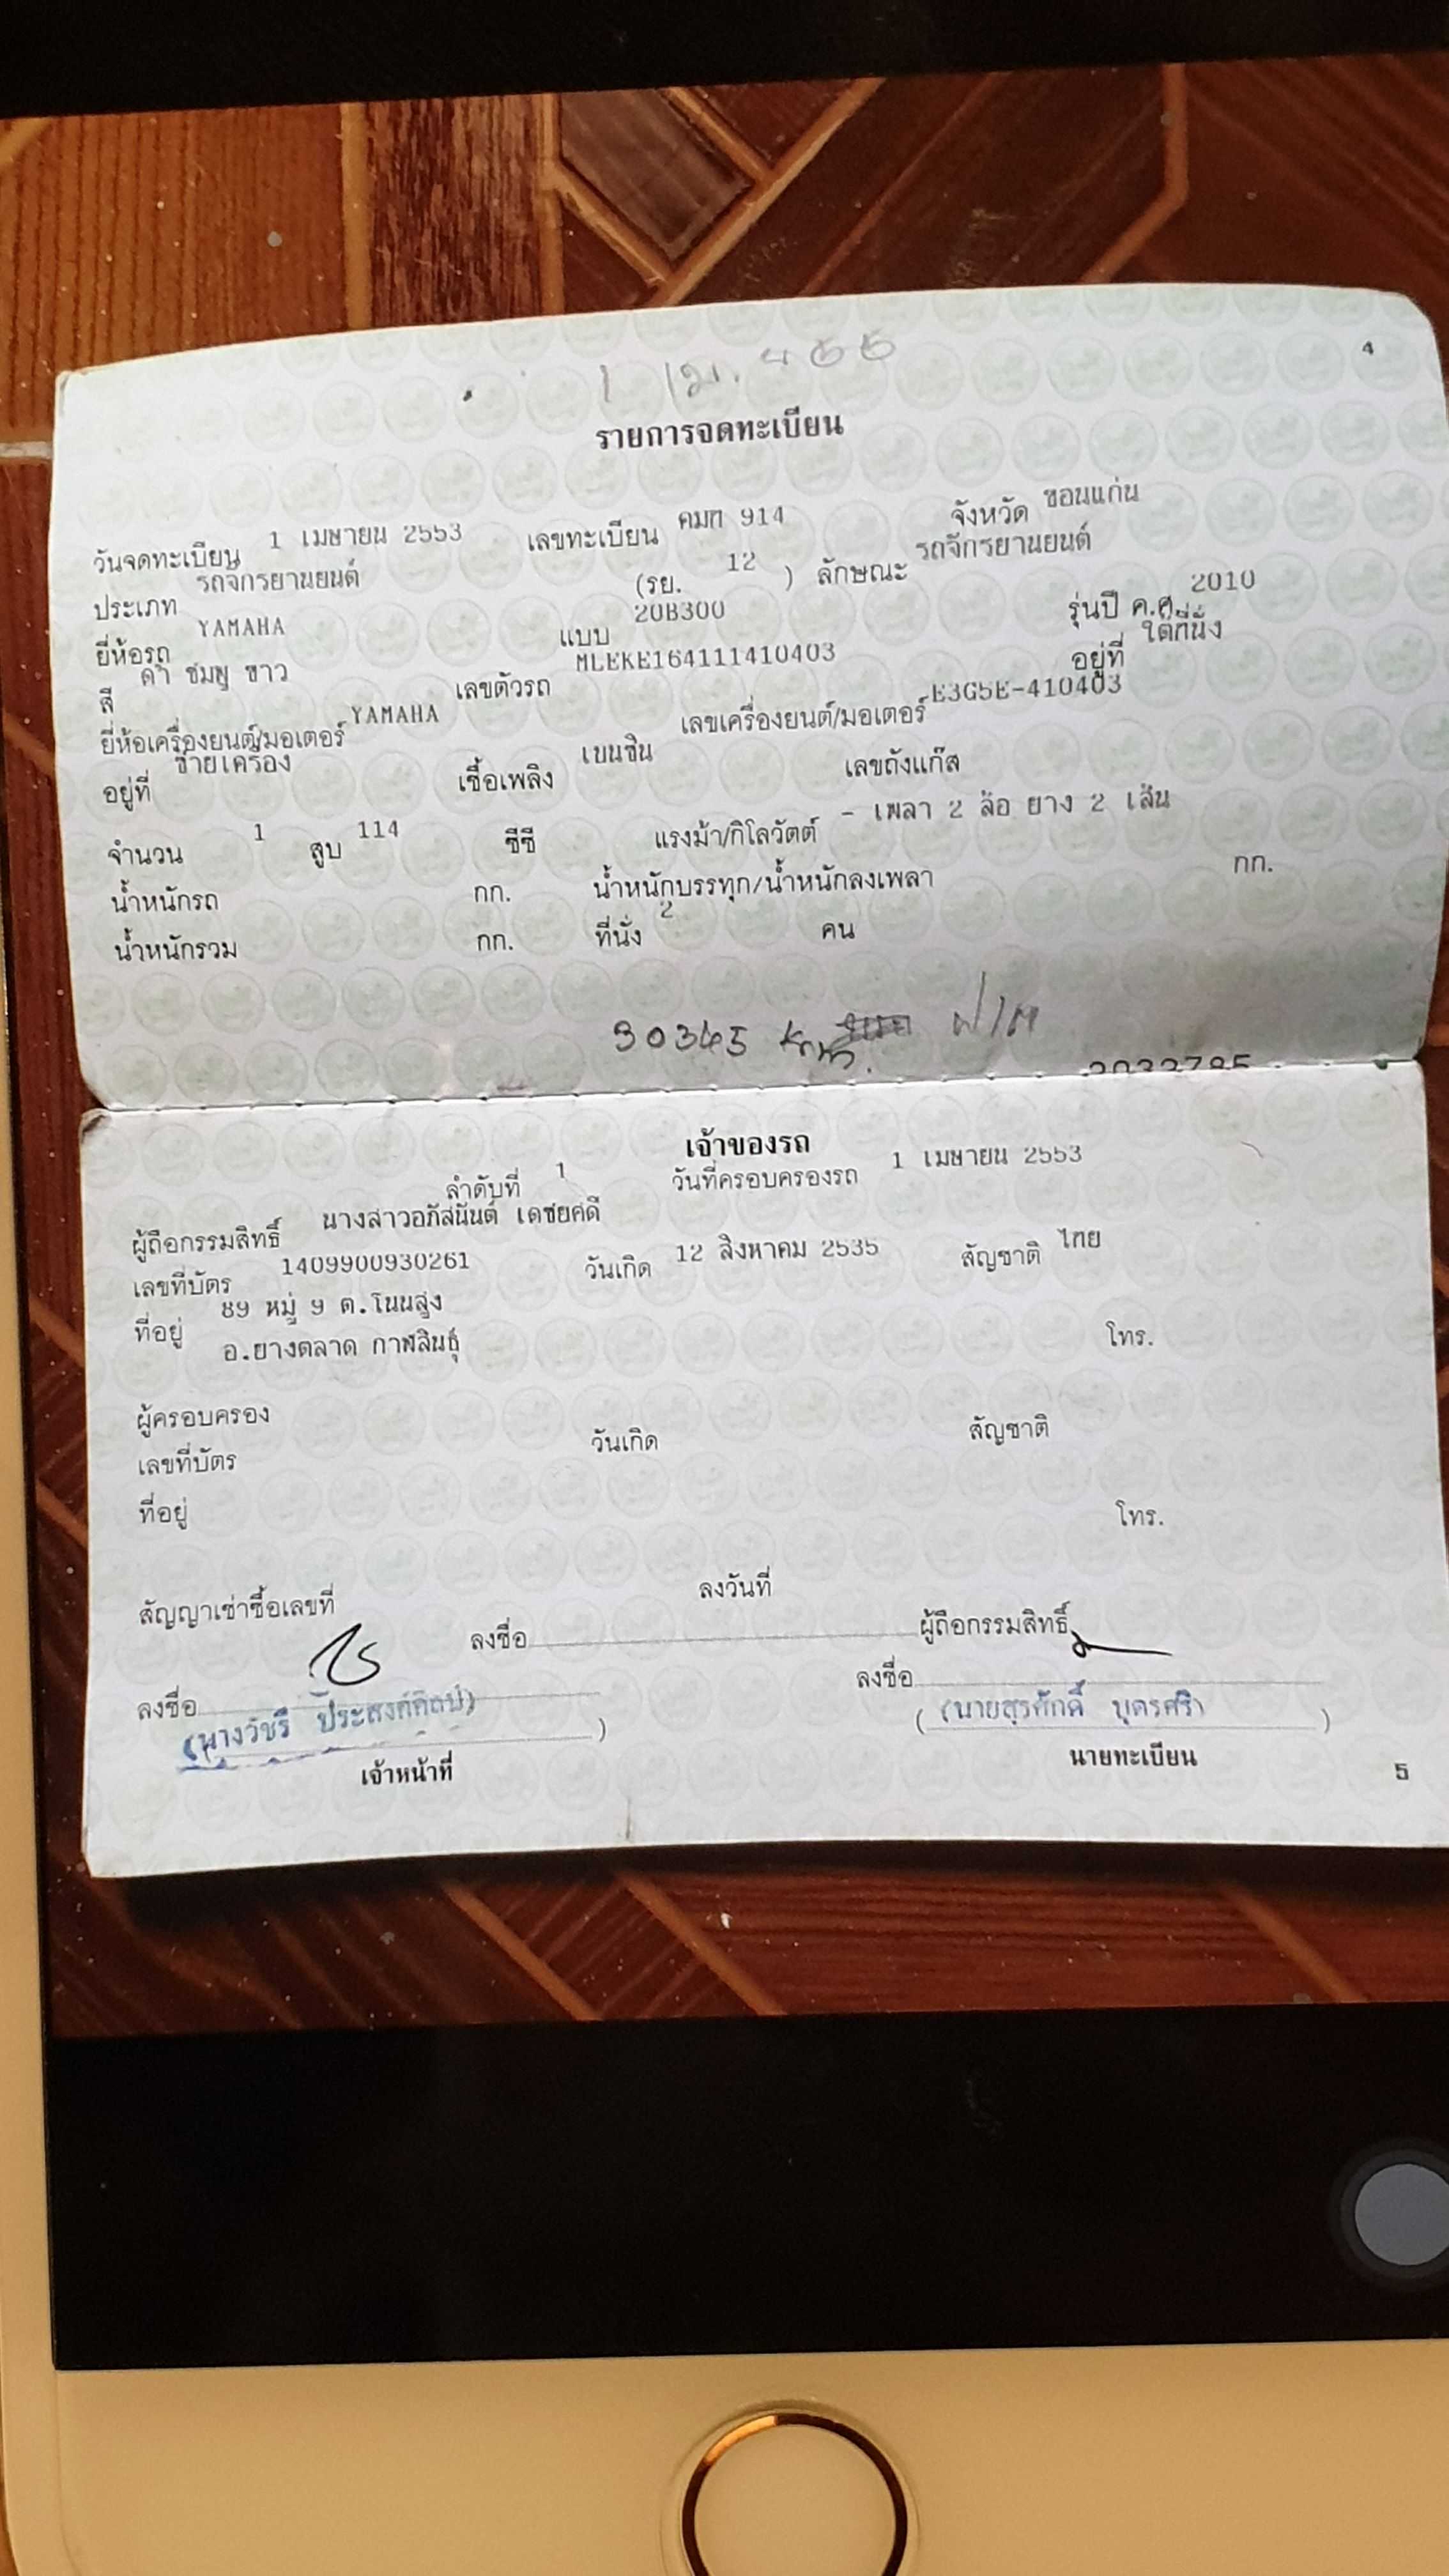 4
รายการจดทะเบียน
วันจดทะเบียน 1 เมษายน 2553 เลขทะเบียน คมก 914 จังหวัด ขอนแก่น
ประเภท รถจักรยานยนต์ (รย. 12 ) ลักษณะ รถจักรยานยนต์
ยี่ห้อรถ YAMAHA แบบ 20B300 รุ่นปี ค.ศ. 2010
สี ดำ ชมพู ขาว เลขตัวรถ MLEKE164111410403 อยู่ที่ ใต้ที่นั่ง
ยี่ห้อเครื่องยนต์/มอเตอร์ YAMAHA เลขเครื่องยนต์/มอเตอร์ E3G5E-410403
อยู่ที่ ซ้ายเครื่อง เชื้อเพลิง เบนซิน เลขถังแก๊ส
จำนวน 1 สูบ 114 ซีซี แรงม้า/กิโลวัตต์ - เพลา 2 ล้อ ยาง 2 เส้น
น้ำหนักรถ กก. น้ำหนักบรรทุก/น้ำหนักลงเพลา กก.
น้ำหนักรวม กก. ที่นั่ง 2 คน
เจ้าของรถ
ลำดับที่ 1 วันที่ครอบครองรถ 1 เมษายน 2553
ผู้ถือกรรมสิทธิ์ นางสาวอภัสนันต์ เดชยศดี
เลขที่บัตร 1409900930261 วันเกิด 12 สิงหาคม 2535 สัญชาติ ไทย
ที่อยู่ 89 หมู่ 9 ต.โนนสูง
อ.ยางตลาด กาฬสินธุ์ โทร.
ผู้ครอบครอง
เลขที่บัตร วันเกิด สัญชาติ
ที่อยู่ โทร.
สัญญาเช่าซื้อเลขที่ ลงวันที่
ลงชื่อ ผู้ถือกรรมสิทธิ์
ลงชื่อ ลงชื่อ
(นางวัชรี ประสงค์ศิลป์) (นายสุรศักดิ์ บุตรศรี)
เจ้าหน้าที่ นายทะเบียน
5